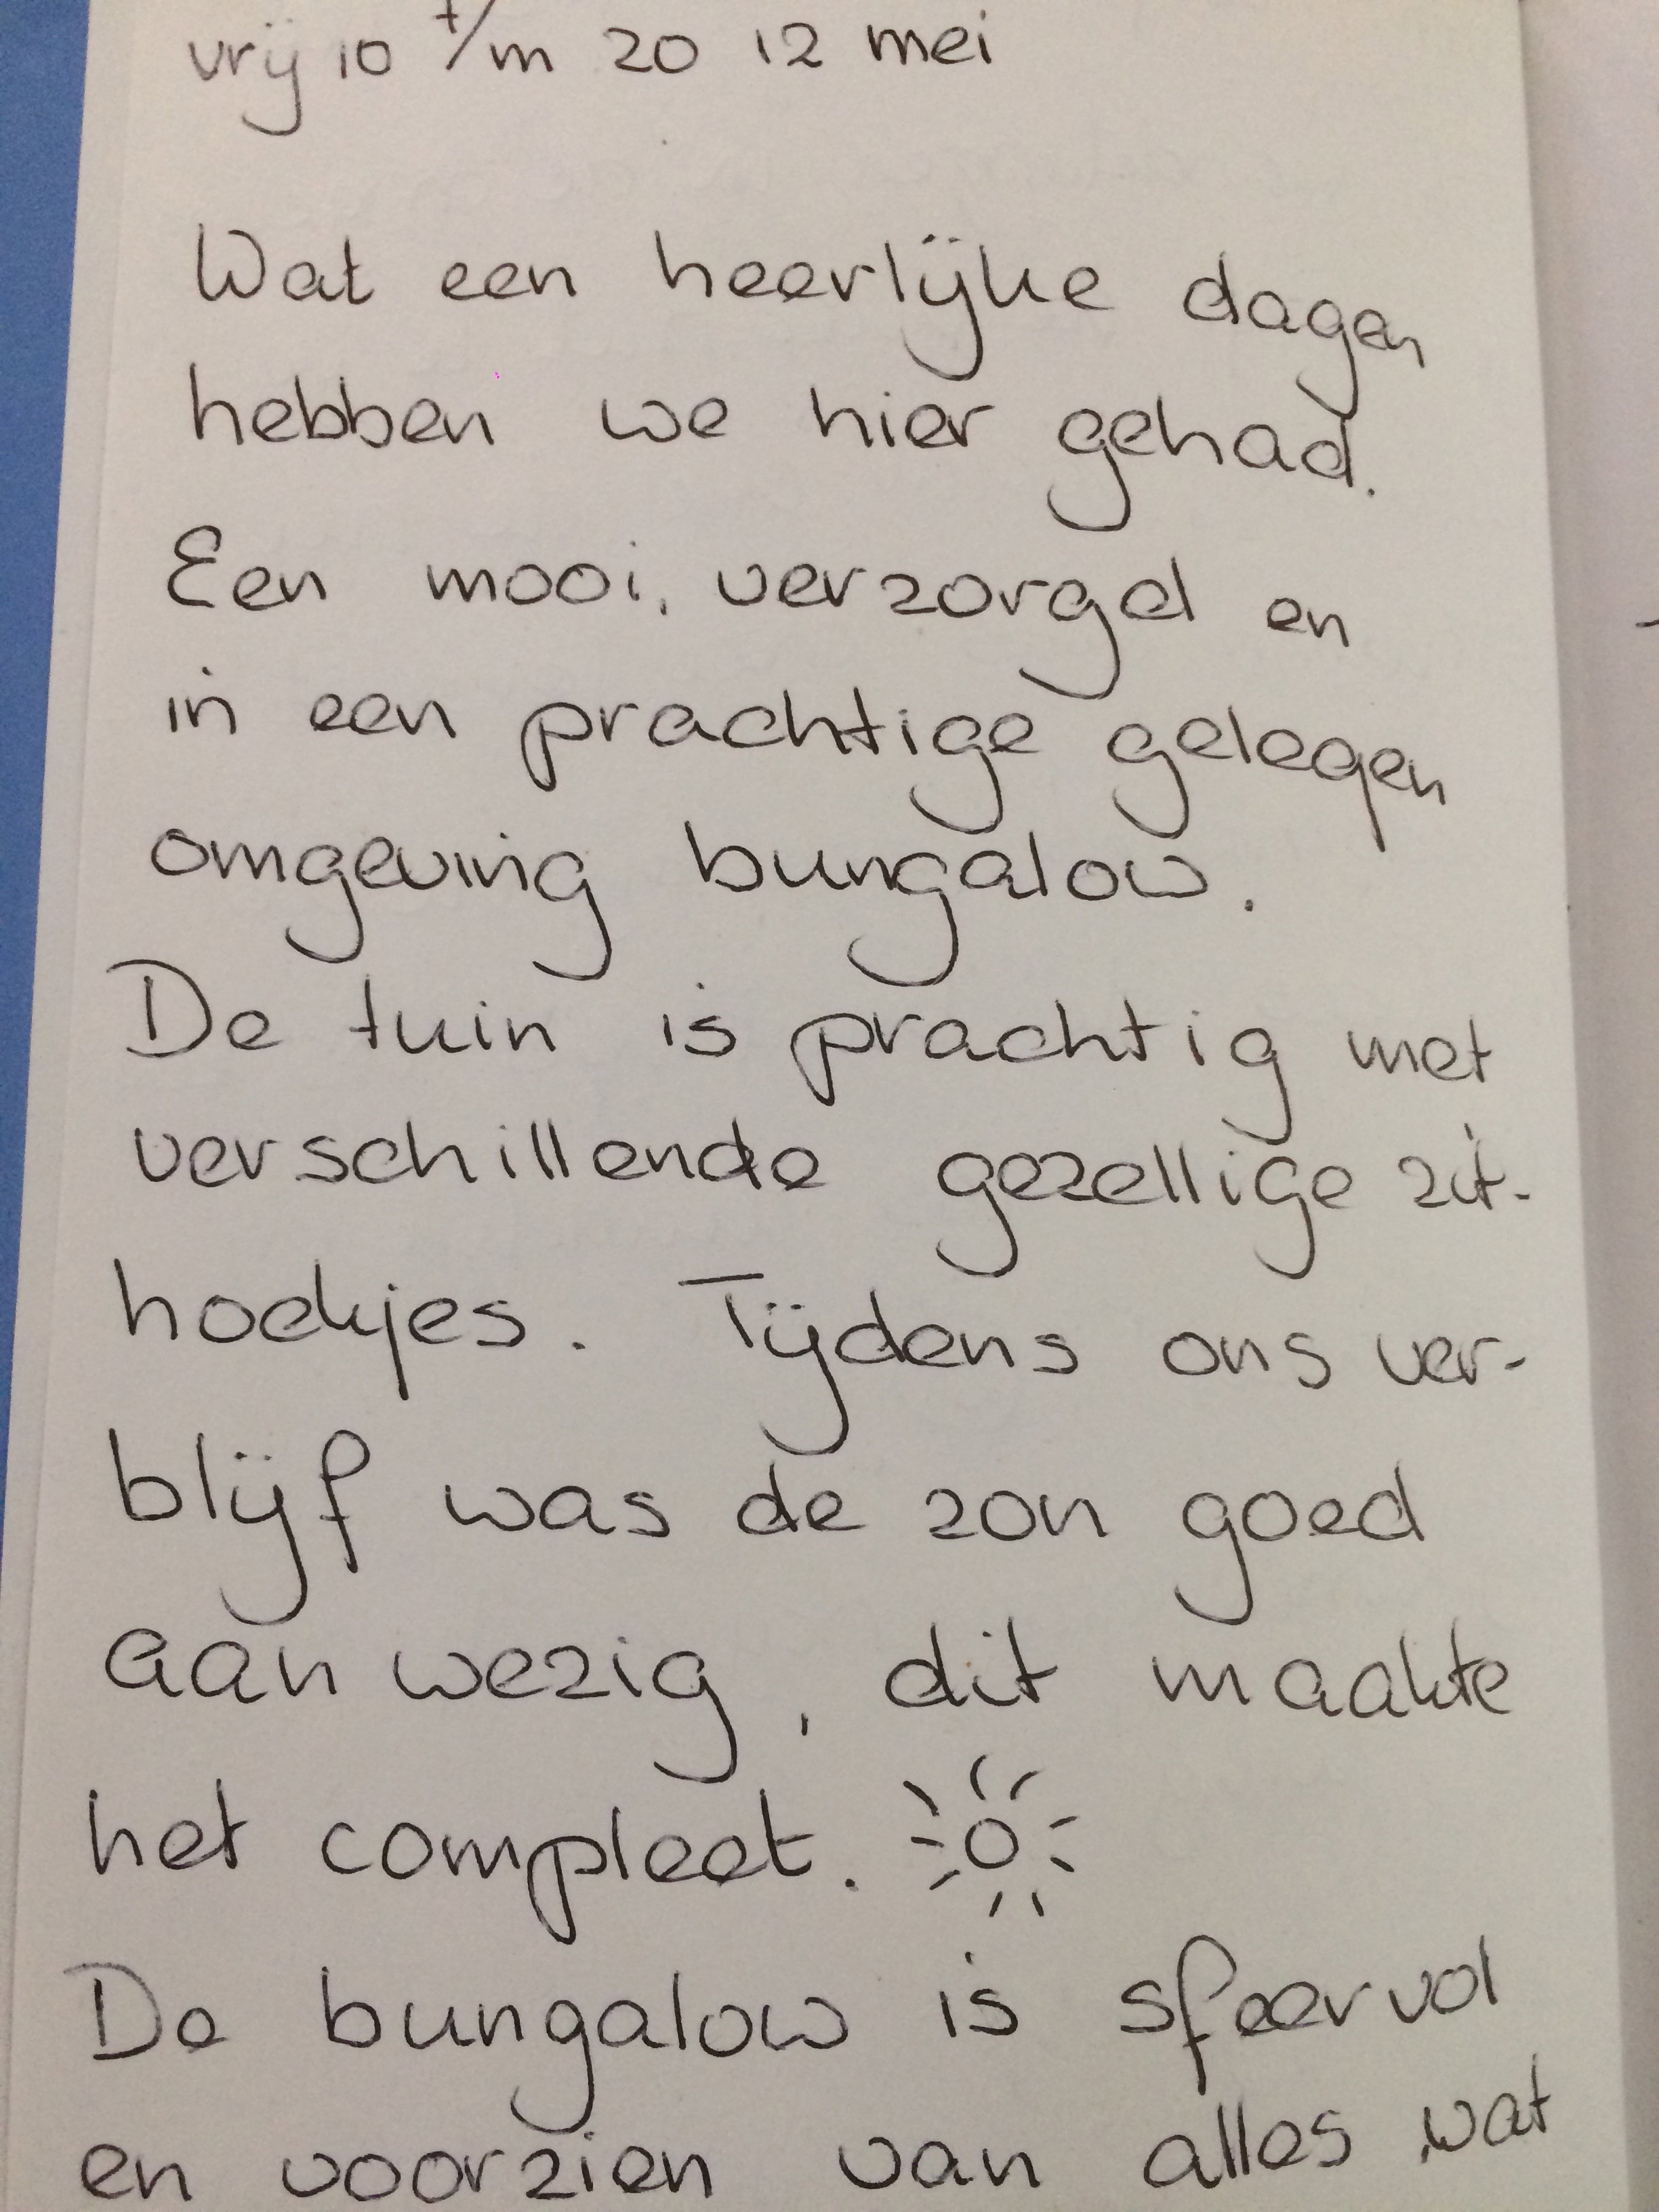 vrij 10 t/m zo 12 mei
Wat een heerlijke dagen
hebben we hier gehad.
Een mooi, verzorgd en
in een prachtige gelegen
omgeving bungalow.
De tuin is prachtig met
verschillende gezellige zit-
hoekjes. Tijdens ons ver-
blijf was de zon goed
aanwezig, dit maakte
het compleet.
De bungalow is sfeervol
en voorzien van alles wat